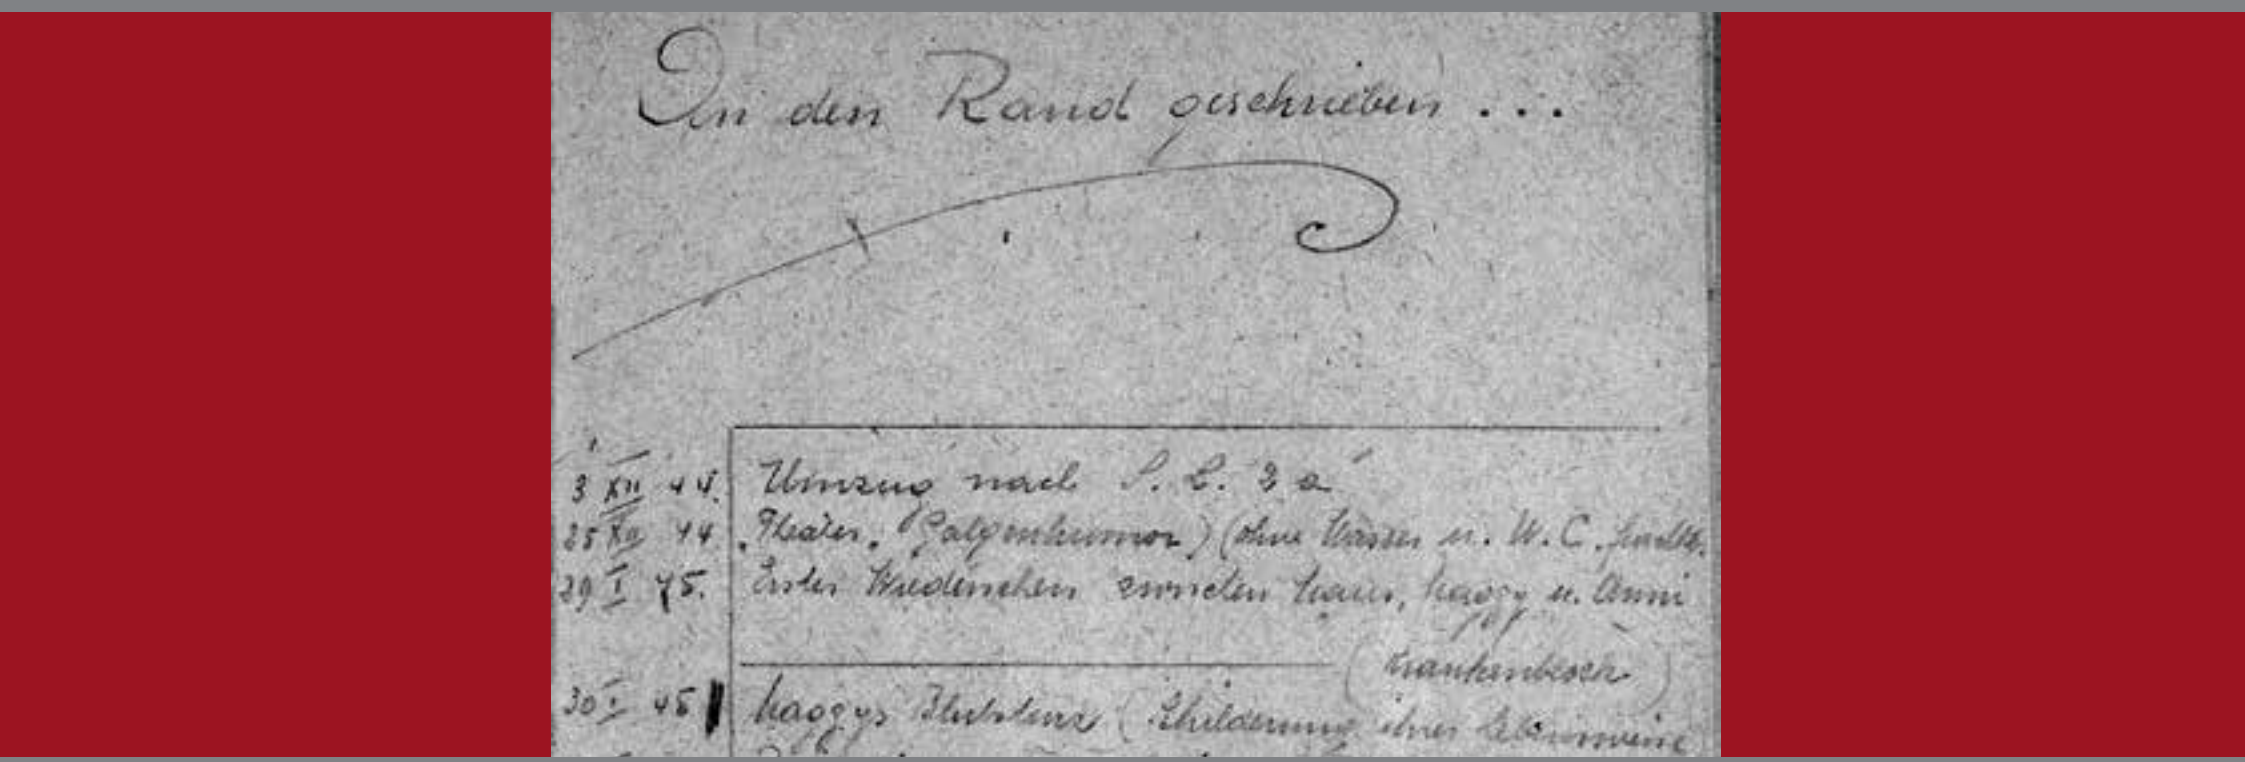 In den Rand geschrieben ...
3 XII 44. Umzug nach S. L. 3 a
25 XII 44 "Theater" Galgenhumor) (ohne Wasser u. W. C.
29 I 45. Erstes Wiedersehen zwischen Haus, haggy u. Anni
(Krankenblock)
30 I 45 haggys Blutsturz (Schilderung ihrer Lebensweise